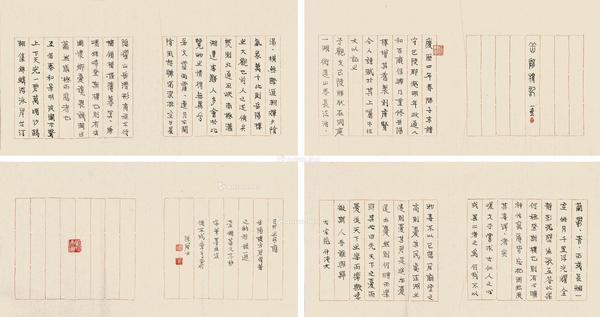 岳陽樓記
慶曆四年春滕子京謫
守巴陵郡越明年政通人
和百廢俱興乃重修岳陽
樓增其舊製刻唐賢
今人詩賦於其上屬予作
文以記之
予觀夫巴陵勝狀在洞庭
一湖銜遠山吞長江浩
湯橫無際涯朝輝夕陰
氣象萬千此則岳陽樓
之大觀也前人之述備矣
然則北通巫峽南極瀟
湘遷客騷人多會於此
覽物之情得無異乎
若夫霪雨霏連月不開
陰風怒號濁浪排空日星
隱曜山岳潛形商旅不行
檣傾楫摧薄暮冥虎
嘯猿啼登斯樓也則有去
國懷鄉憂讒畏譏滿目
蕭然感極而悲者也
至若春和景明波瀾不驚
上下天光一碧萬頃沙鷗
翔集錦鱗游泳岸芷汀
蘭郁青而或長煙一
空皓月千里浮光耀金
靜影沉璧漁歌互答此樂
何極登斯樓也則有心曠
神怡寵辱皆忘把酒臨風
其喜洋者矣
嗟夫予嘗求古仁人之心
或異二者之為何哉不以
物喜不以己悲居廟堂之
高則憂其民處江湖之
遠則憂其君是進亦憂
退亦憂然則何時而樂
耶其必曰先天下之憂而
憂後天下之樂而樂歟噫
微斯人吾誰與歸
大宋范仲淹文